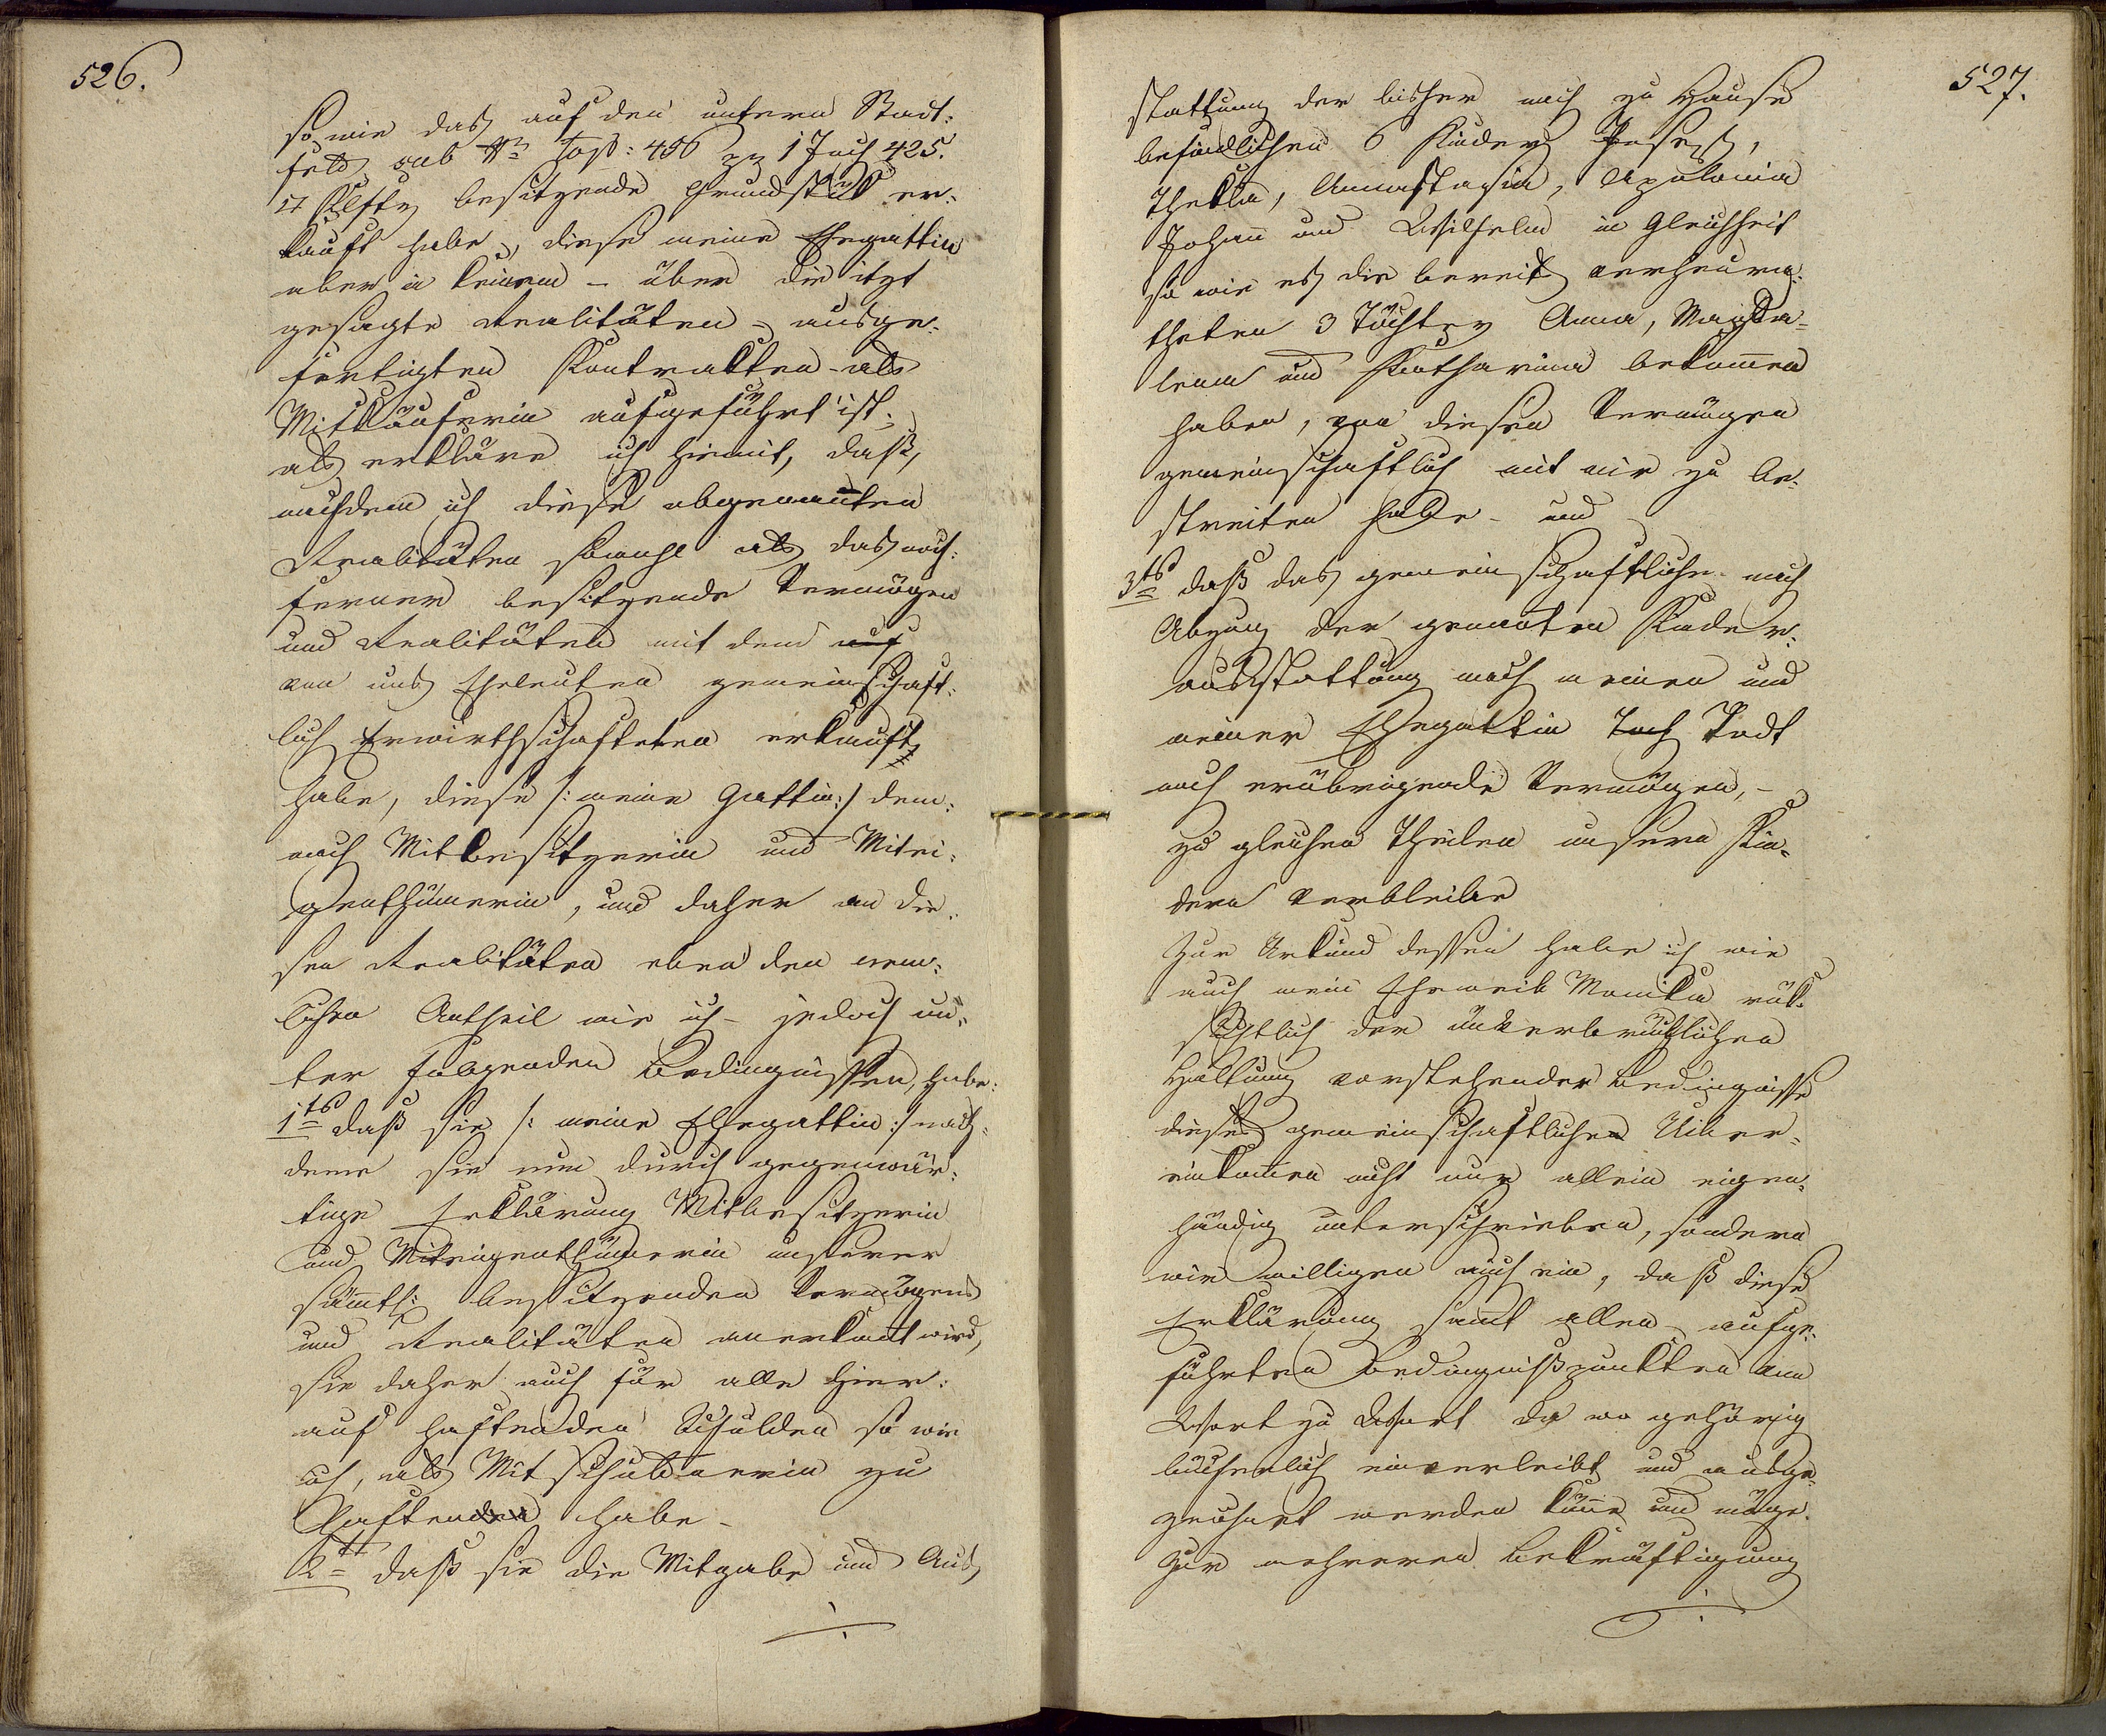 526.
so wie das auf den untern Stadt:
felde sub Nro Top: 456 pr 1 Joch 425.
□ Klftr besitzende Grundstük er:
kauft habe, diese meine Ehegattin
aber in keinem – über die itzt
gesagte Realitäten – ausge:
fertigten Kontrakten – als
Mitkäuferin aufgeführt ist;
als erkläre ich hiemit, daß,
nachdem ich diese obgenannten
Realitäten sowohl als das noch:
ferner besitzende Vermögen
und Realitäten mit dem auf
von uns Eheleuten gemeinschaft:
lich Erwirthschafteten erkauft
habe, diese /: meine Gattin :/ dem:
nach Mitbesitzerin und Mitei:
genthümerin, und daher an die:
sen Realitäten eben den nem:
lichen Antheil wie ich – jedoch un:
ter folgenden Bedingnissen, habe:
1tens daß sie /: meine Ehegattin :/ nach:
deme sie nun durch gegenwär:
tige Erklärung Mitbesitzerin
und Miteigenthümerin unserer
sämtl: besitzenden Vermögens
und Realitäten anerkant wird,
sie daher auch für alle hier:
auf haftenden Schulden so wie
ich, als Mitschuldnerin zu
haftenden habe –
2tens daß sie die Mitgabe und Aus
527.
stattung der bisher noch zu Hause
befindlichen 6 Kinder Joseph,
Thekla, Annastasia, Apolonia
Johann und Wilhelm in Gleichheit
so wie es die bereits verheura:
theten 3 Töchter Anna, Magda=
lena und Katharina bekomen
haben, von diesen Vermögen
gemeinschaftlich mit mir zu be:
streiten habe – und
3tens daß das gemeinschaftliche nach
Abzug der genanten Kinder:
ausstattung nach meinen und
meiner Ehegattin Tod
noch erübrigende Vermögen, –
zu gleichen Theilen unsern Kin=
dern verbleibe
Zur Urkund dessen habe ich wie
auch mein Eheweib Monika rük:
sichtlich der unverbrüchlichen
Haltung vorstehender Bedingnisse
dieses gemeinschaftlichen Uiber=
einkomen nicht nur allein eigen=
händig unterschrieben, sondern
wir willigen auch ein, daß diese
Erklärung samt allen aufge:
führten Bedingnißpunkten von
Wort zu Wort da wo gehörig
bücherlich einverleibt und ausge=
zeichnet werden könne und möge.
Zur mehreren Bekräftigung